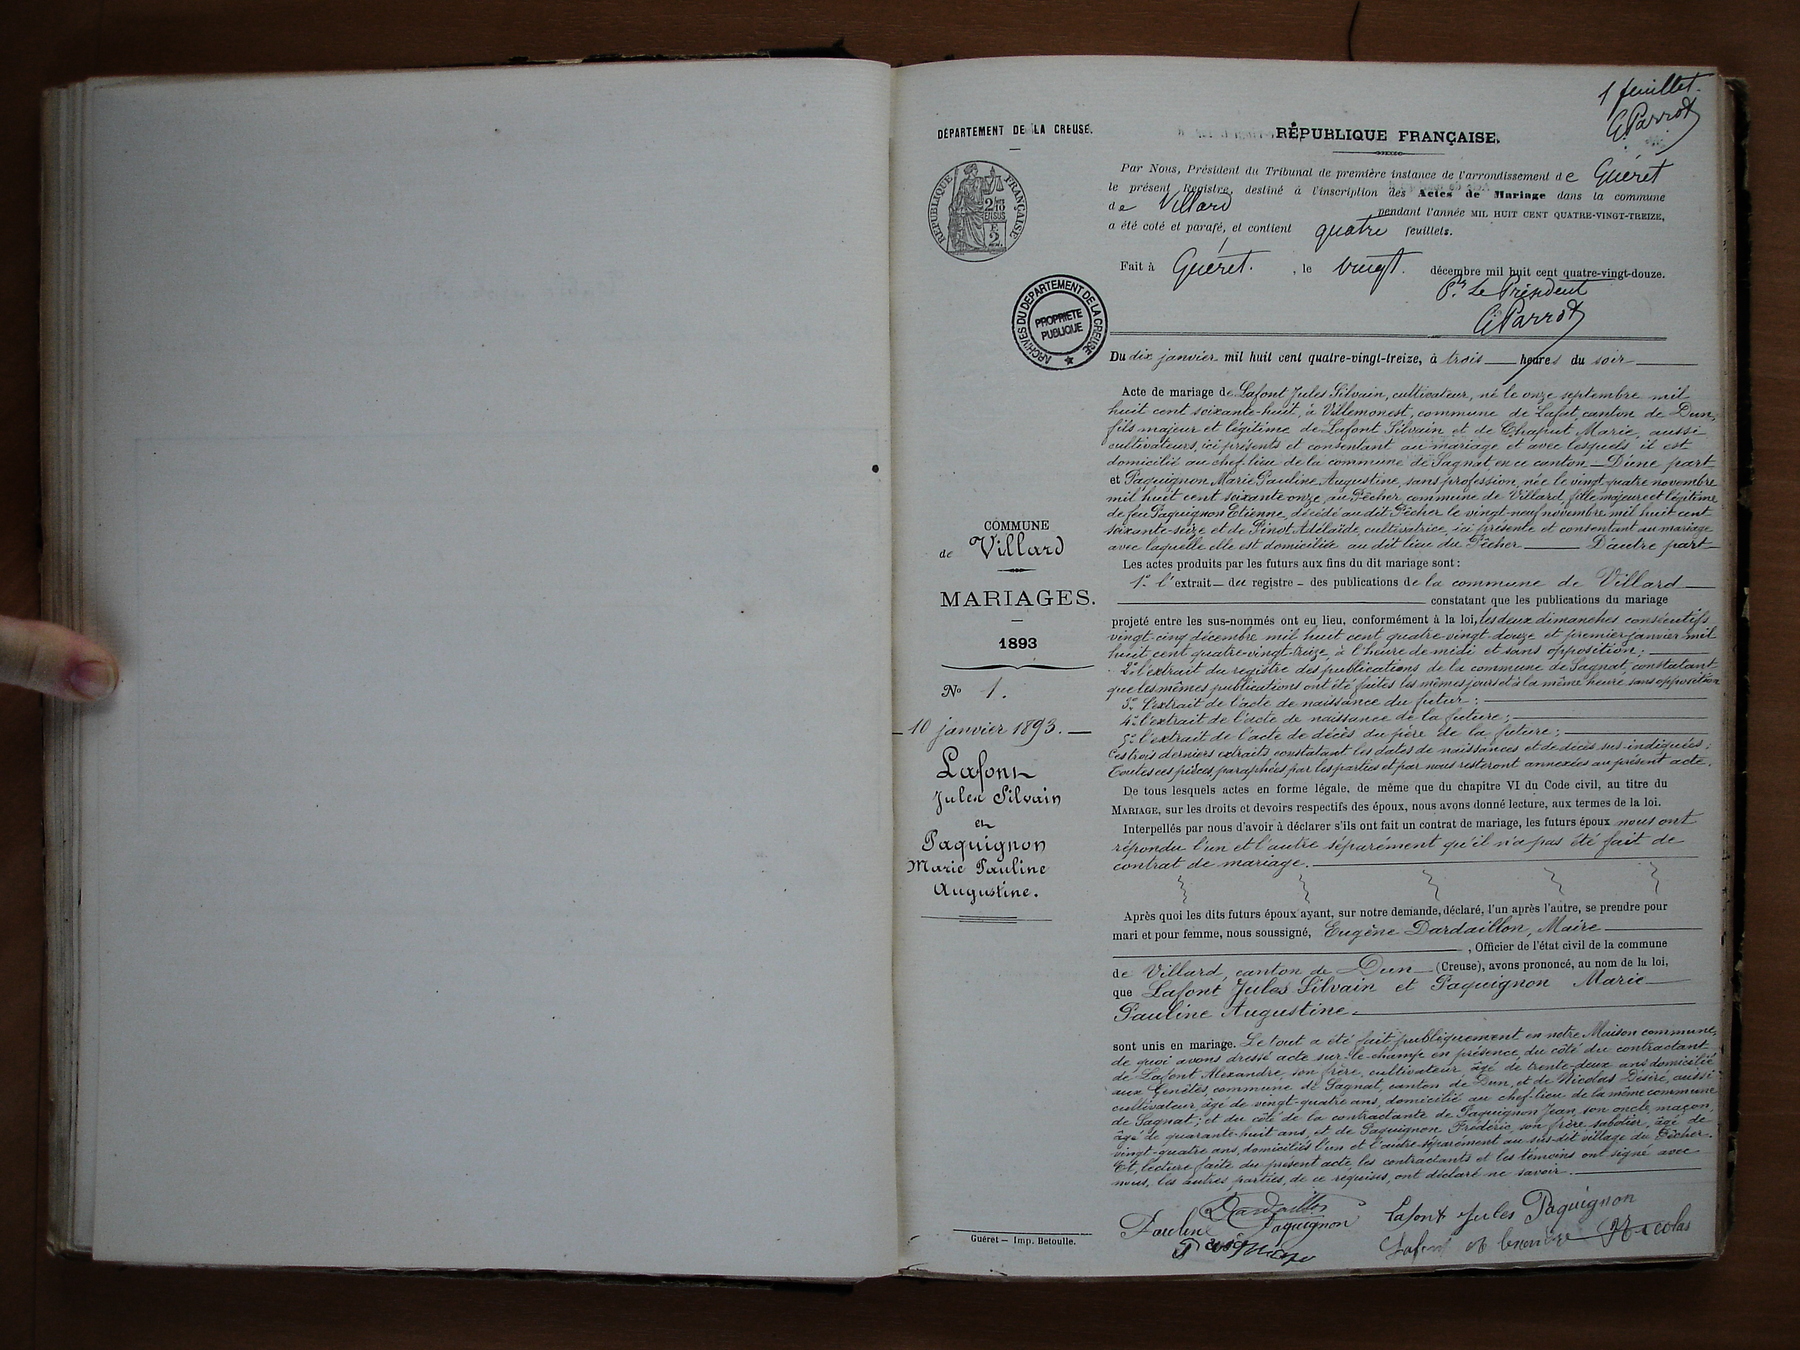 1 feuillet.
G Parrot
DÉPARTEMENT DE LA CREUSE.
RÉPUBLIQUE FRANÇAISE
2/10
EN SUS
F
2.
ARCHIVES DU DÉPARTEMENT DE LA CREUSE
PROPRIETE
PUBLIQUE
COMMUNE
de Villard
MARIAGES.
1893
No 1.
10 janvier 1893.
Lafont
Jules Silvain
et
Paquignon
Marie Pauline
Augustine.
Guéret — Imp. Betoulle.
RÉPUBLIQUE FRANÇAISE.
Par Nous, Président du Tribunal de première instance de l'arrondissement de Guéret
le présent Registre, destiné à l'inscription des Actes de Mariage dans la commune
de Villard pendant l'année MIL HUIT CENT QUATRE-VINGT-TREIZE,
a été coté et parafé, et contient quatre feuillets.
Fait à Guéret. , le vingt. décembre mil huit cent quatre-vingt-douze.
Pr. Le Président
G Parrot
Du dix janvier mil huit cent quatre-vingt-treize, à trois heures du soir
Acte de mariage de Lafont Jules Silvain, cultivateur, né le onze septembre mil
huit cent soixante-huit, à Villemonest, commune de Lafat, canton de Dun,
fils majeur et légitime de Lafont Silvain et de Chaput Marie, aussi
cultivateurs, ici présents et consentant au mariage et avec lesquels il est
domicilié au chef-lieu de la commune de Sagnat en ce canton — D'une part
et Paquignon Marie Pauline Augustine, sans profession, née le vingt quatre novembre
mil huit cent soixante onze, au Pêcher commune de Villard, fille majeure et légitime
de feu Paquignon Etienne, décédé au dit Pêcher le vingt-neuf novembre mil huit cent
soixante-seize et de Pinot Adélaïde cultivatrice, ici présente et consentant au mariage
avec laquelle elle est domiciliée au dit lieu du Pêcher — D'autre part
Les actes produits par les futurs aux fins du dit mariage sont :
1° l'extrait — du registre — des publications de la commune de Villard
constatant que les publications du mariage
projeté entre les sus-nommés ont eu lieu, conformément à la loi, les deux dimanches consécutifs
vingt-cinq décembre mil huit cent quatre-vingt-douze et premier janvier mil
huit cent quatre-vingt-treize, à l'heure de midi et sans opposition ;
2° l'extrait du registre des publications de la commune de Sagnat, constatant
que les mêmes publications ont été faites les mêmes jours et à la même heure sans opposition
3° l'extrait de l'acte de naissance du futur ;
4° l'extrait de l'acte de naissance de la future ;
5° l'extrait de l'acte de décès du père de la future ;
Ces trois derniers extraits constatant les dates de naissances et de décès sus-indiquées ;
Toutes ces pièces paraphées par les parties et par nous resteront annexées au présent acte.
De tous lesquels actes en forme légale, de même que du chapitre VI du Code civil, au titre du
MARIAGE, sur les droits et devoirs respectifs des époux, nous avons donné lecture, aux termes de la loi.
Interpellés par nous d'avoir à déclarer s'ils ont fait un contrat de mariage, les futurs époux nous ont
répondu l'un et l'autre séparément qu'il n'a pas été fait de
contrat de mariage.
Après quoi les dits futurs époux ayant, sur notre demande, déclaré, l'un après l'autre, se prendre pour
mari et pour femme, nous soussigné, Eugène Dardaillon, Maire
, Officier de l'état civil de la commune
de Villard, canton de Dun (Creuse), avons prononcé, au nom de la loi,
que Lafont Jules Silvain et Paquignon Marie
Pauline Augustine.
sont unis en mariage. Le tout a été fait publiquement en notre Maison commune,
de quoi avons dressé acte sur-le-champ en présence, du côté du contractant
de Lafont Alexandre, son frère, cultivateur, âgé de trente-deux ans domicilié
aux Genêtes, commune de Sagnat, canton de Dun, et de Nicolas Désiré, aussi
cultivateur, âgé de vingt-quatre ans, domicilié au chef-lieu de la même commune
de Sagnat ; et du côté de la contractante de Paquignon Jean, son oncle, maçon,
âgé de quarante-huit ans, et de Paquignon Frédéric, son frère sabotier, âgé de
vingt-quatre ans, domiciliés l'un et l'autre séparément au sus-dit village du Pêcher.
Et, lecture faite du présent acte, les contractants et les témoins ont signé avec
nous, les autres parties, de ce requises, ont déclaré ne savoir.
Dardaillon
Pauline Paquignon
Lafont Jules Paquignon
Lafont Nicolas